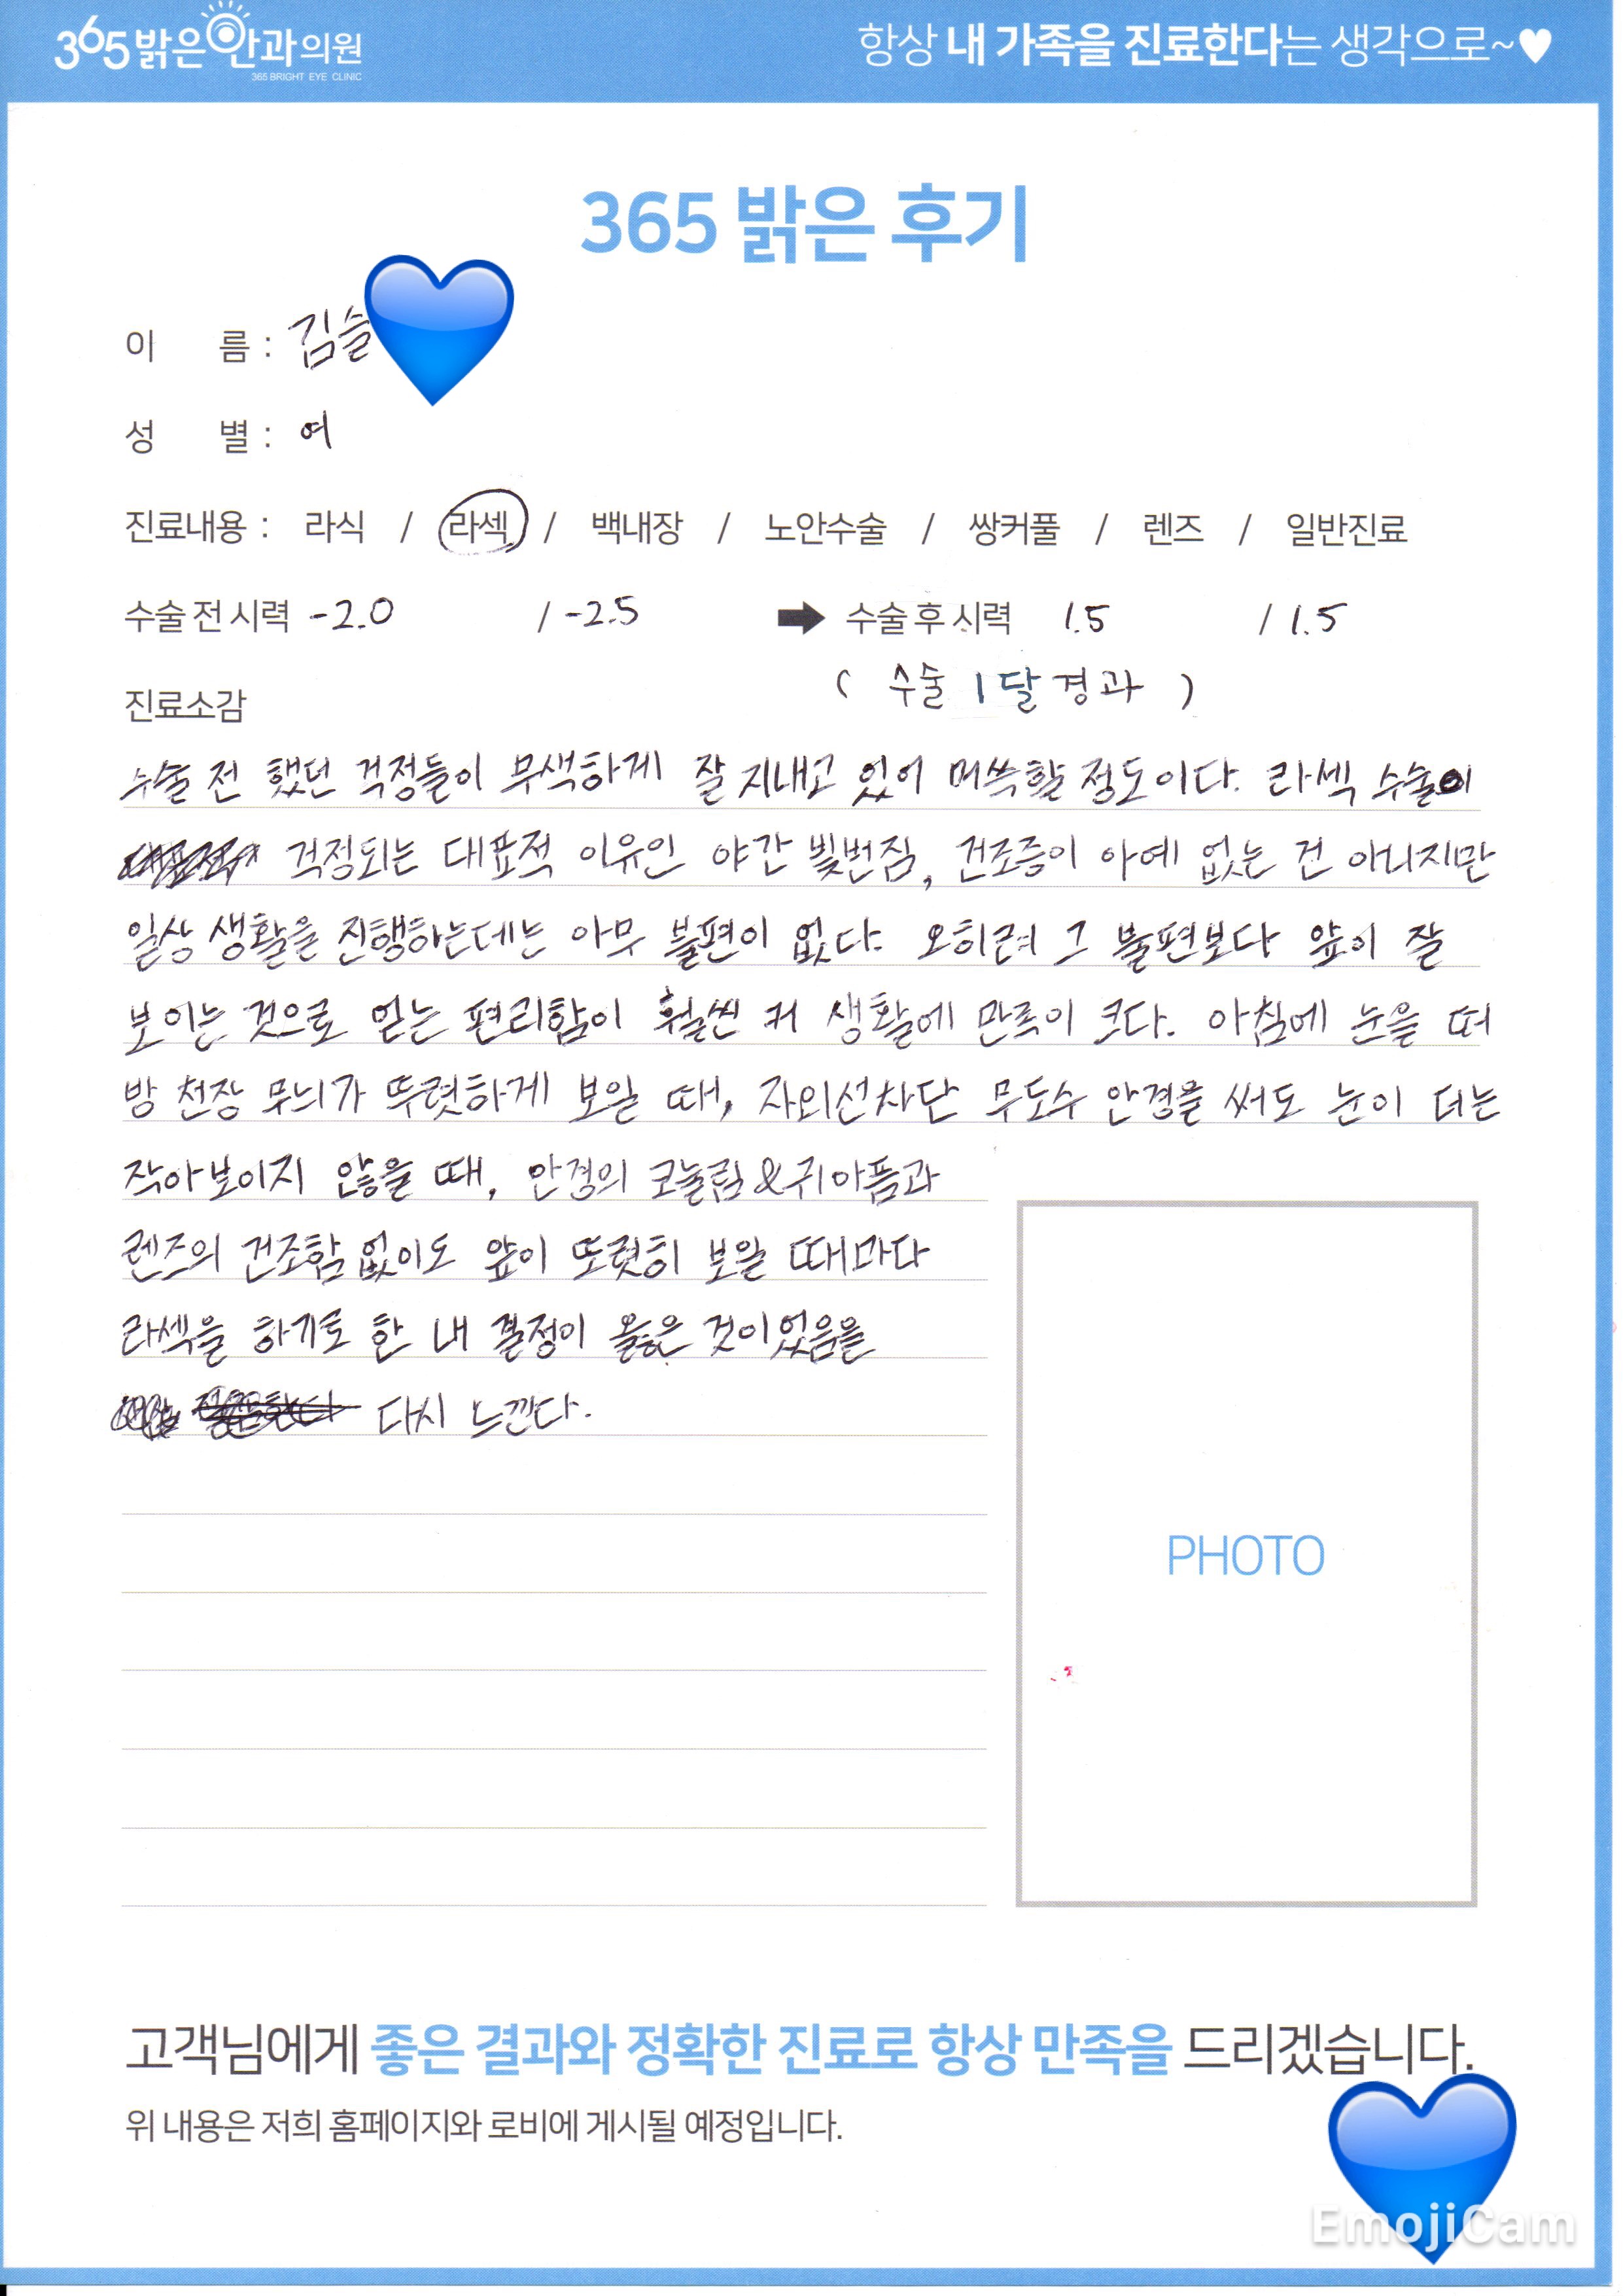 365밝은안과의원
365 BRIGHT EYE CLINIC
항상 내 가족을 진료한다는 생각으로~♥
365 밝은 후기
이 름 : 김슬
성 별 : 여
진료내용 : 라식 / 라섹 / 백내장 / 노안수술 / 쌍커풀 / 렌즈 / 일반진료
수술 전 시력 -2.0 / -2.5 ➡ 수술 후 시력 1.5 / 1.5
( 수술 1달 경과 )
진료소감
수술 전 했던 걱정들이 무색하게 잘 지내고 있어 머쓱할 정도이다. 라섹 수술이
걱정되는 대표적 이유인 야간 빛번짐, 건조증이 아예 없는 건 아니지만
일상 생활을 진행하는데는 아무 불편이 없다. 오히려 그 불편보다 앞이 잘
보이는 것으로 얻는 편리함이 훨씬 커 생활에 만족이 크다. 아침에 눈을 떠
방 천장 무늬가 뚜렷하게 보일 때, 자외선차단 무도수 안경을 써도 눈이 더는
작아보이지 않을 때, 안경의 코눌림&귀아픔과
렌즈의 건조함 없이도 앞이 또렷히 보일 때마다
라섹을 하기로 한 내 결정이 옳은 것이었음을
다시 느낀다.
PHOTO
고객님에게 좋은 결과와 정확한 진료로 항상 만족을 드리겠습니다.
위 내용은 저희 홈페이지와 로비에 게시될 예정입니다.
EmojiCam